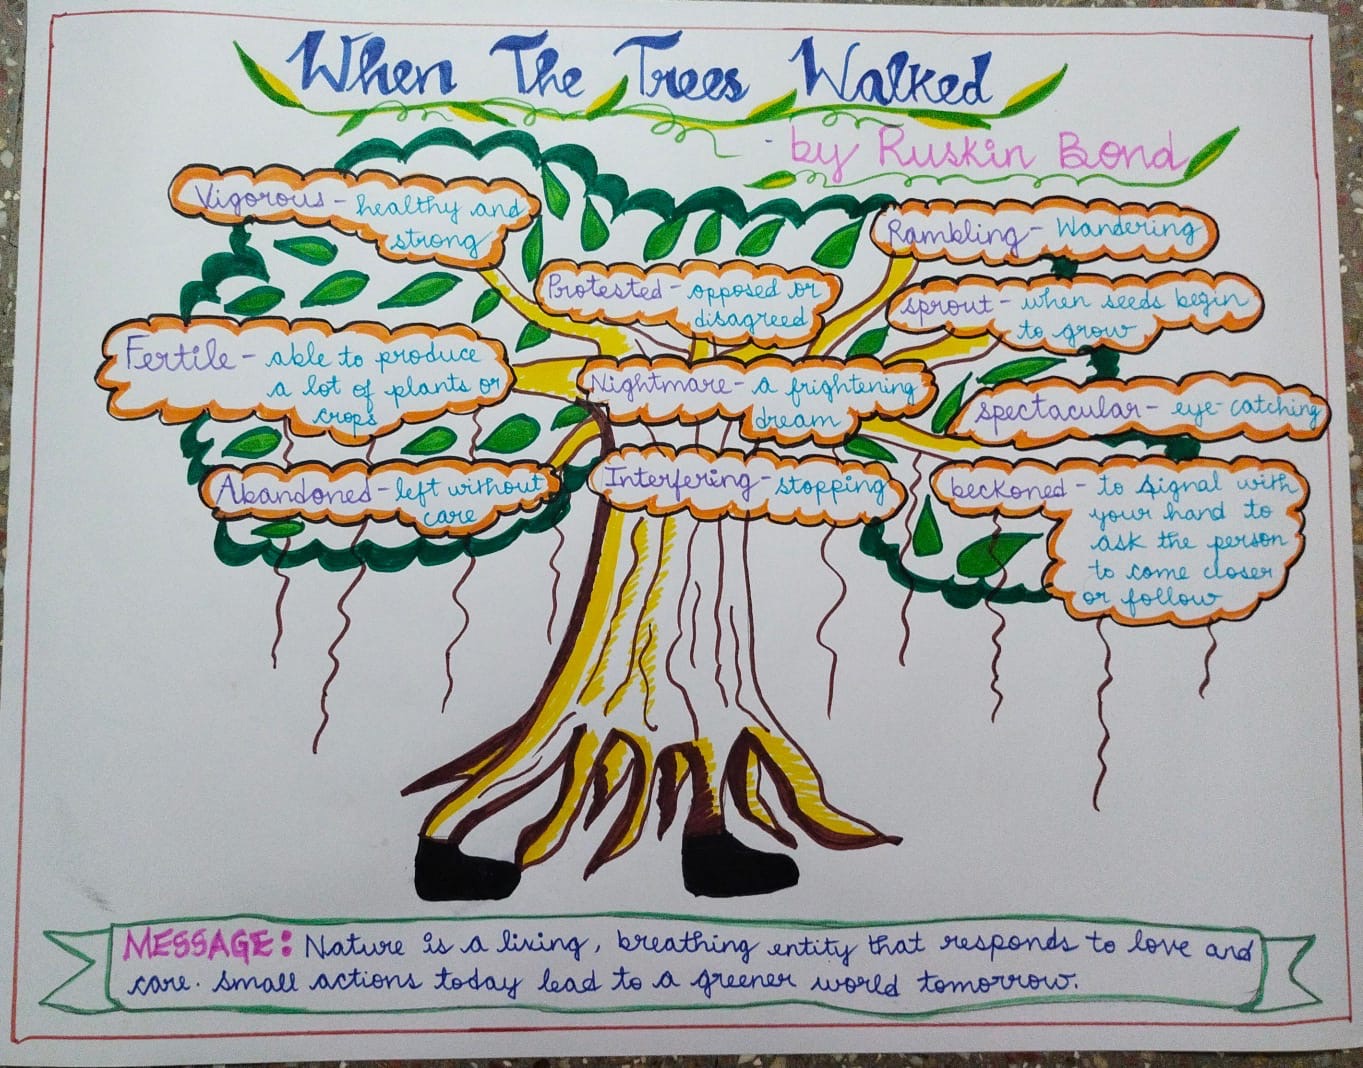 When The Trees Walked
- by Ruskin Bond
Vigorous - healthy and
strong
Rambling - Wandering
Protested - opposed or
disagreed
sprout - when seeds begin
to grow
Fertile - able to produce
a lot of plants or
crops
Nightmare - a frightening
dream
spectacular - eye-catching
Abandoned - left without
care
Interfering - stopping
beckoned - to signal with
your hand to
ask the person
to come closer
or follow
MESSAGE: Nature is a living, breathing entity that responds to love and
care. Small actions today lead to a greener world tomorrow.